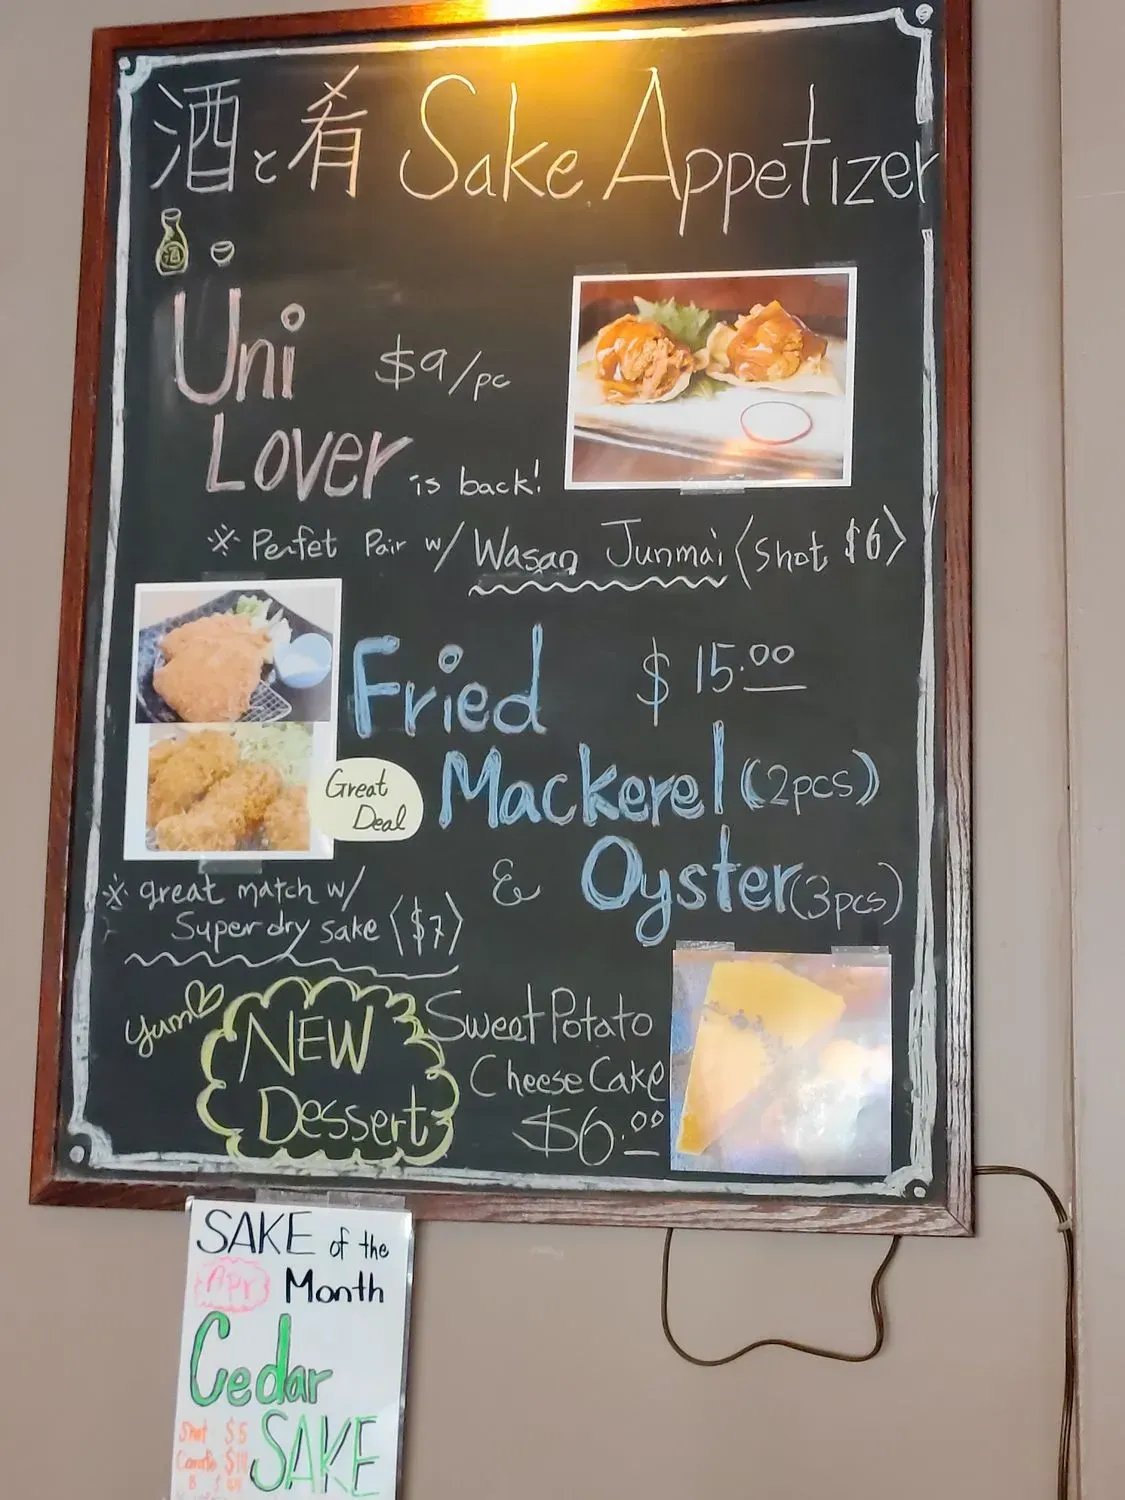 酒と肴 Sake Appetizer
酒
Uni
$9/pc
Lover is back!
※ Perfet Pair w/ Wasan Junmai 〈Shot $6〉
Fried $15.00
Great
Deal
Mackerel (2pcs)
& Oyster (3pcs)
※ great match w/
Super dry sake 〈$7〉
yum♡
NEW
Dessert
Sweet Potato
Cheese Cake
$6.00
SAKE of the
Apr Month
Cedar
SAKE
Shot $5